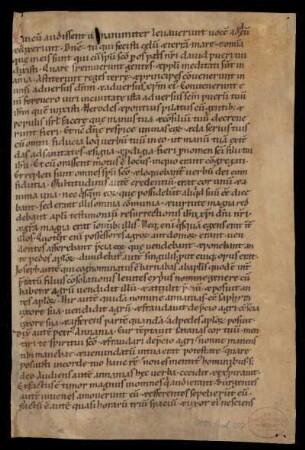 cum audissent unanimiter levaverunt vocē ad dm̄
& dixerunt. Dn̄e tu qui fecisti cęlū & terrā mare & omīa
que in eis sunt qui cū spū sc̄o p os patris nr̄i david pueri tui
dixisti. Quare fremuerunt gentes & ppl̄i meditati sunt in
ania. Astiterunt reges terrę & principes convenerunt in
unū adversus dn̄m & adversus xp̄m ei. Convenerunt e
nim vere in civitate ista adversus sc̄m puerū tuū
ihm̄ que unxisti herodes & pontius pilatus cū gentib: &
populis isrl̄ facere que manus tua & consiliū tuū decreve
runt fieri. Et nc̄ dn̄e respice in minas eoꝝ & da servis tuis
cū omni fiducia loqi verbū tuū in eo qd manū tuā exten
das ad sanitates & signa & pdigia fieri p nomen sc̄i filii tui
ihū. Et cū orassent motus ē locus in quo erant congregati
& repleti sunt omnes spū sc̄o & loquebant verbū dei cum
fiducia. Multitudinis autē credentiū erat cor unū & a
nima una nec quisqm̄ eoꝝ que possidebat aliqd suū ēē dice
bant sed erant illis omnia cōmunia. & virtute magna red
debant apl̄i testimoniū resurrectionis ihū xp̄i dn̄i nr̄i
& gratia magna erat in omnib: illis. Neq; eni qsqua egens erat int̄
illos. Quotqt eni possessores agroꝝ aut domoꝝ erant ven
dentes afferebant p̄cia eoꝝ que vendebant & ponebant an
te pedes aploꝝ. Dividebat aūt singulis put cuiq; opus erat.
Ioseph autē qui cognominat ē barnabas ab aplis quod ē int̄
p̄tatū filius consolationis levites cyprius genere cū
haber& agrū vendidit illū & attulit p̄ciū & posuit an
te pedes aploꝝ. Vir autē quidā nomine ananias cū saphyra
uxore sua vendidit agrū & fraudavit de p̄cio agri conscia
uxore sua & afferens partē quandā ad pedes aploꝝ posuit.
Dix autē petr̄ ananiā. Cur tēptavit satanas cor tuū men
tiri te spiritui sc̄o & fraudare de p̄cio agri. nonne manens
tibi manebat & venundatū in tua erat potestate. Quare
posuisti in corde tuo hanc rē. non es mentit hominib: s;
deo. Audiens autē ananias hęc verba cecidit & expiravit
Et factus ē timor magnus in omnes q audierant. Surgentes
autē iuvenes amoverunt eū & efferentes sepelierunt. Fa
ctū ē autē quasi horarū triū spaciū & uxor ei nesciens